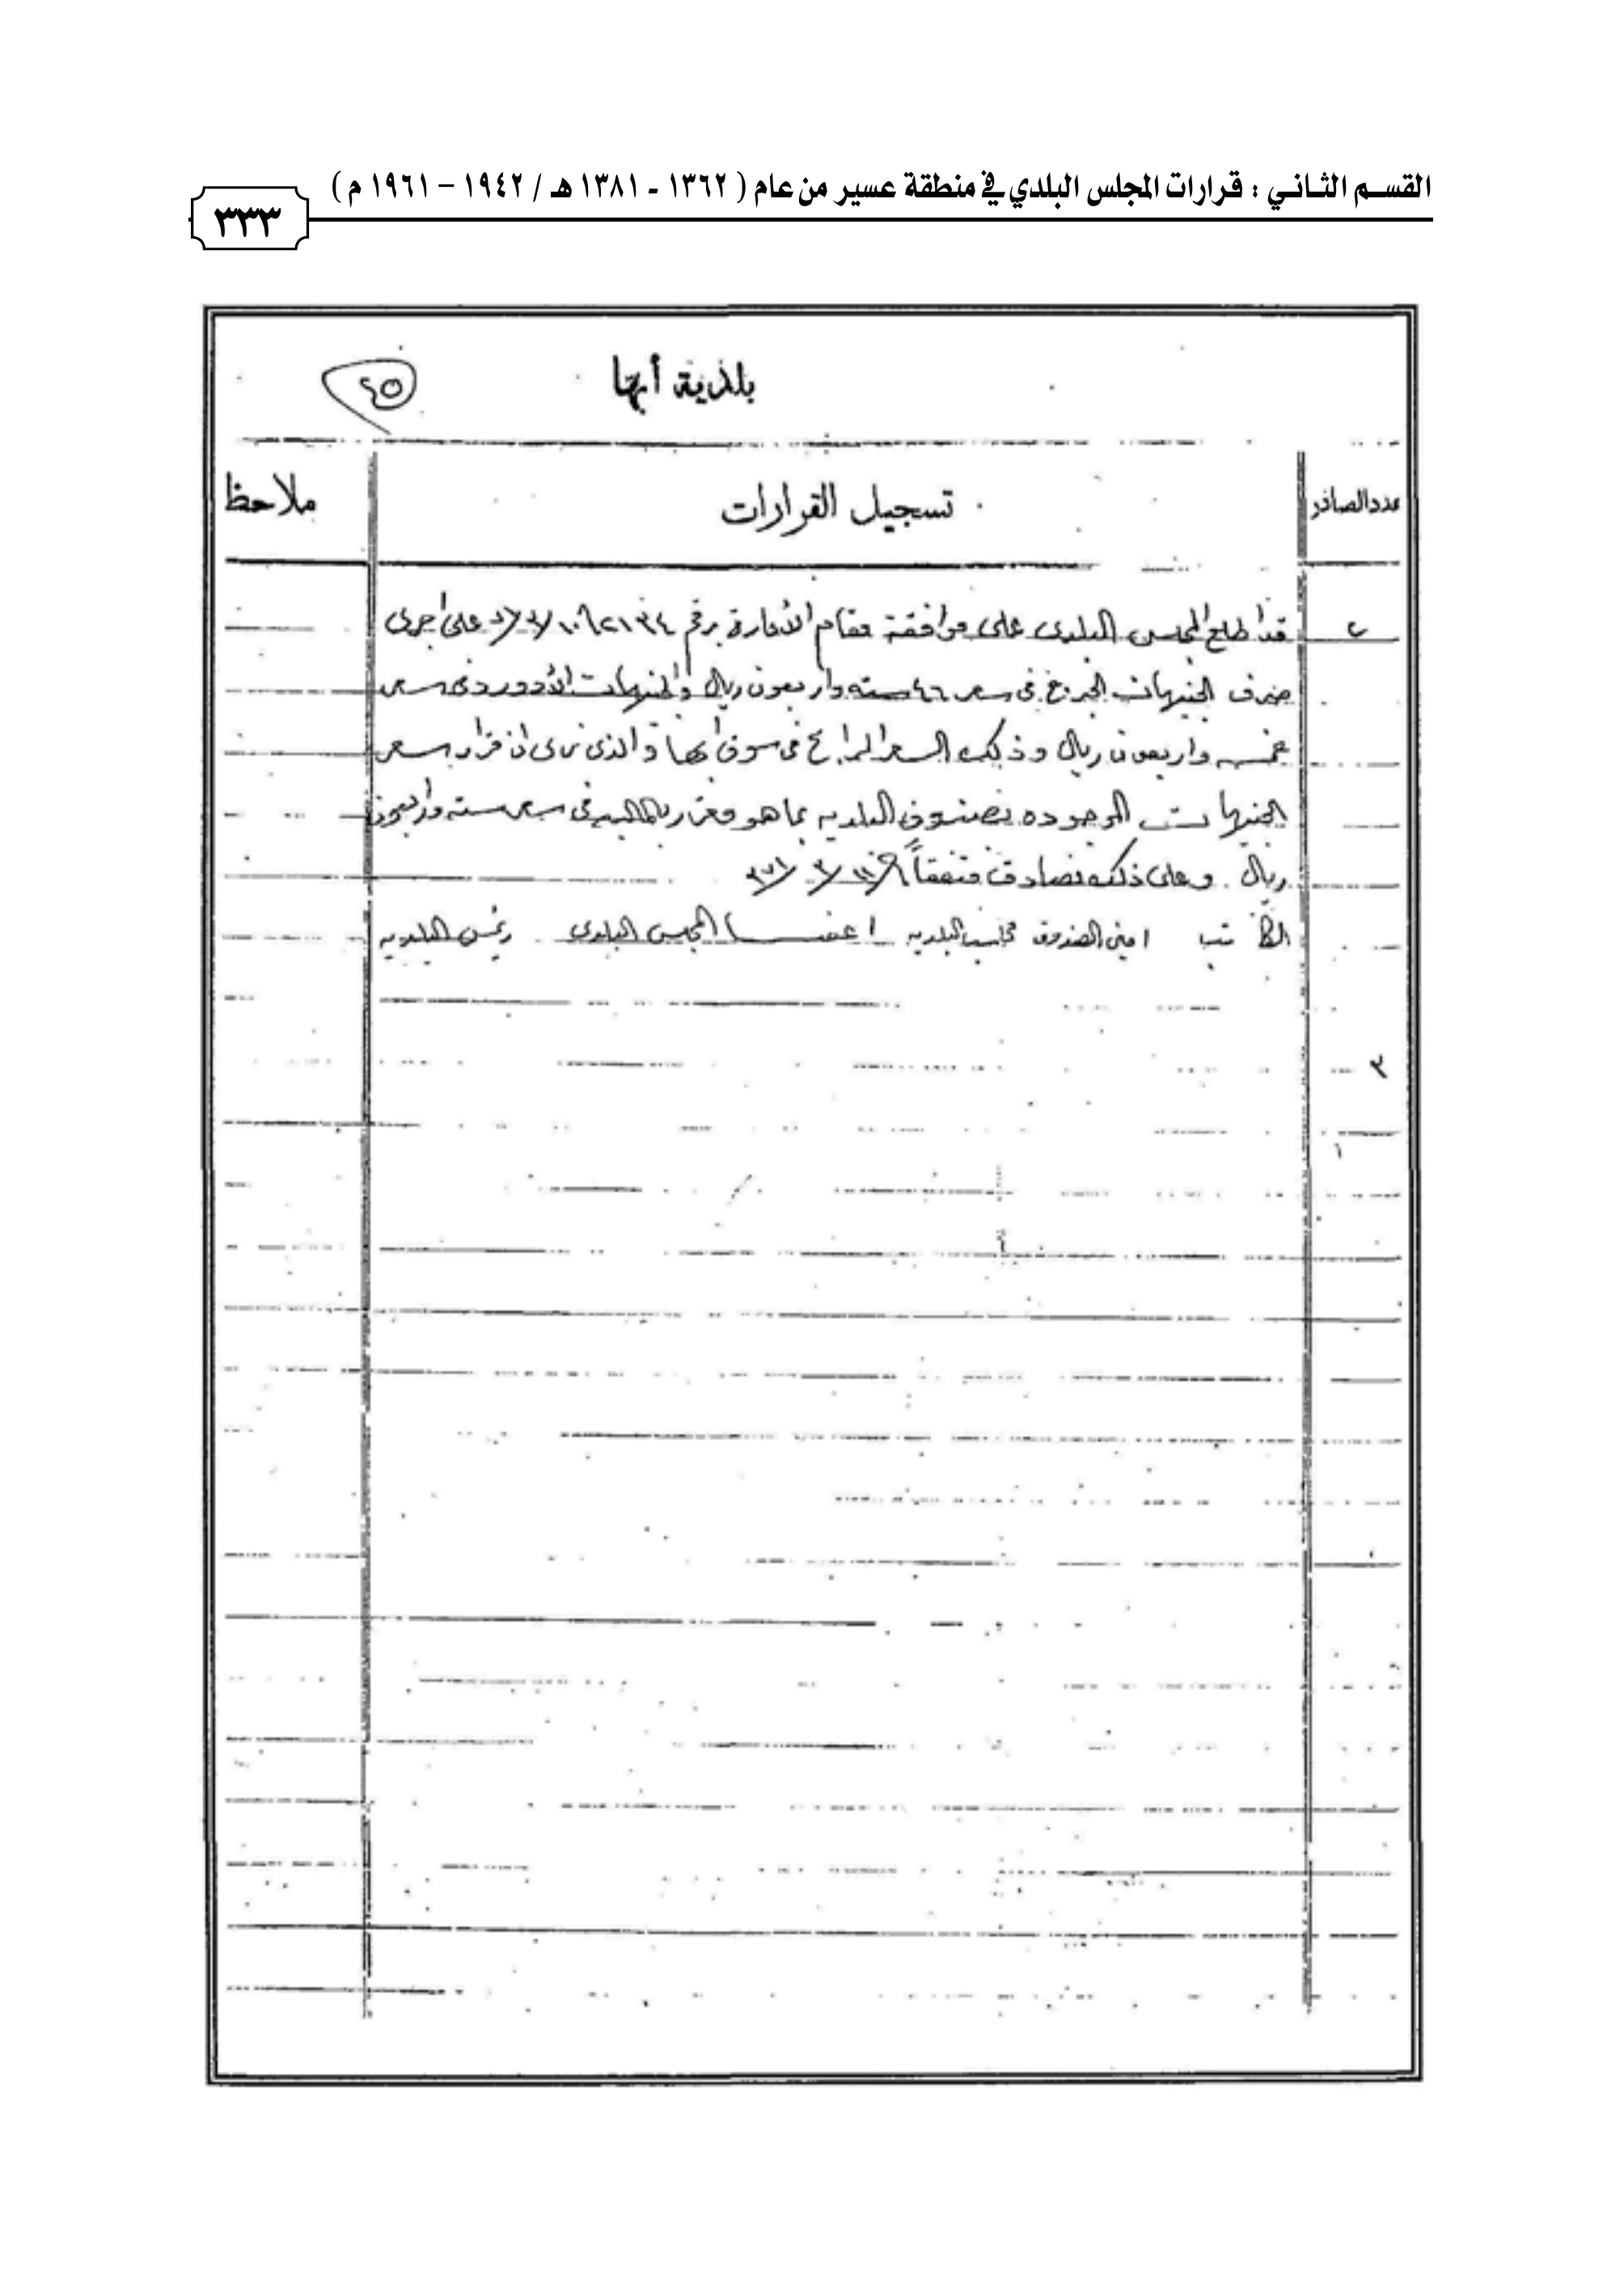 القسم الثاني : قرارات المجلس البلدي في منطقة عسير من عام ( ١٣٦٢ - ١٣٨١ هـ / ١٩٤٢ – ١٩٦١ م )
٣٣٣
بلدية أبها
٤٥
عدد الصادر
تسجيل القرارات
ملاحظ
٢
قد اطلع المجلس البلدى على موافقة مقام الأمارة برقم على اجرى
صرف الجنيهات الجورج فى سعر ٤٦ سته واربعون ريال والجنيهات الأدورد فى سعر
خمسه واربعون ريال وذلك السعر الرابح فى سوق ابها والذى نرى ان قرار سعر
الجنيهات الموجوده بصندوق البلديه بما هو مقرر فى سعر سته واربعون
ريال . وعلى ذلك نصادق
الكاتب امين الصندوق محاسب البلديه اعضا المجلس البلدى رئيس البلديه
٣